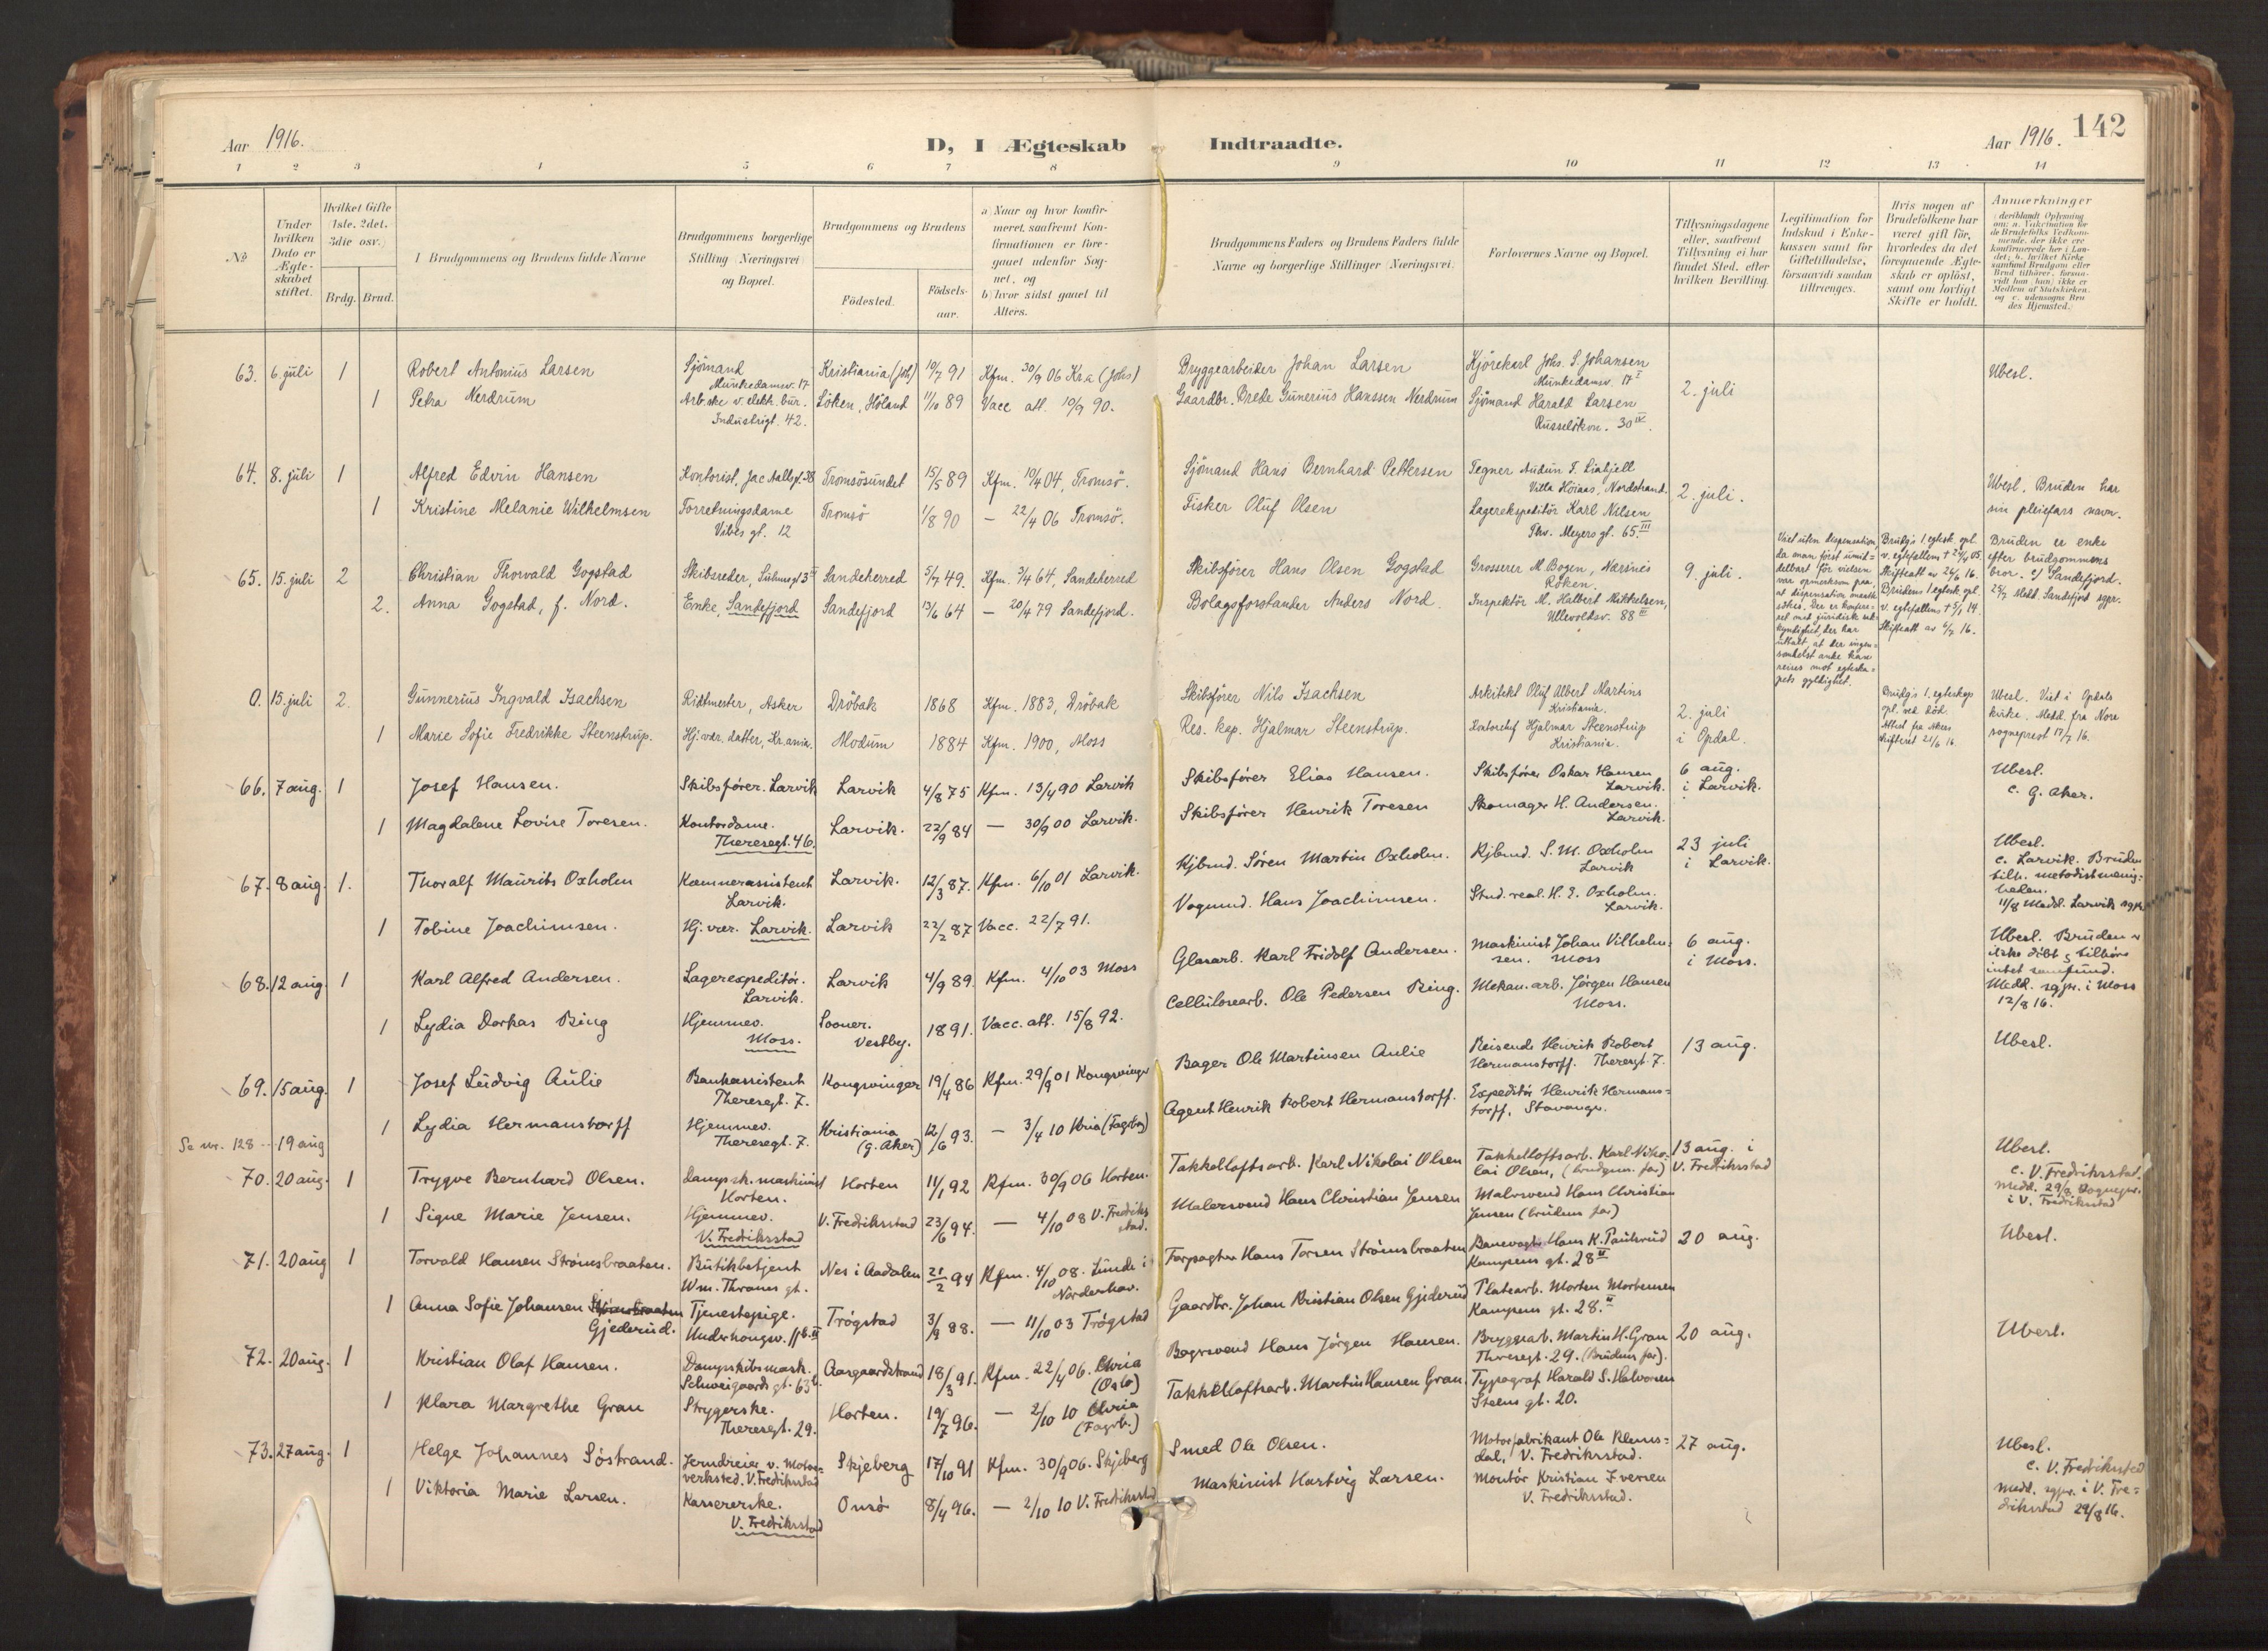 Aar 1916.
D, I Ægteskab Indtraadte.
Aar 1916. 142
1 2 3 4 5 6 7 8 9 10 11 12 13 14
No
Under hvilken Dato er Ægteskabet stiftet.
Hvilket Gifte (1ste. 2det. 3die osv.)
Brdg. Brud.
Brudgommens og Brudens fulde Navne
Brudgommens borgerlige Stilling (Næringsvei) og Bopæl.
Brudgommens og Brudens
Födested. Födselsaar.
a) Naar og hvor konfirmeret, saafremt Konfirmationen er foregaaet udenfor Sognet, og
b) hvor sidst gaaet til Alters.
Brudgommens Faders og Brudens Faders fulde Navne og borgerlige Stillinger (Næringsvei).
Forlovernes Navne og Bopæl.
Tillysningsdagene eller, saafremt Tillysning ei har fundet Sted, efter hvilken Bevilling.
Legitimation for Indskud i Enkekassen samt for Giftetilladelse, forsaavidt saadan tiltrænges.
Hvis nogen af Brudefolkene har været gift för, hvorledes da det foregaaende Ægteskab er oplöst, samt om lovligt Skifte er holdt.
Anmærkninger
63. 6 juli 1 Robert Antonius Larsen Sjömand Kristiania (Joh) 10/7 91 Kfm. 30/9 06 Kr.a (Johs) Bryggearbeider Johan Larsen Kjörekarl Johs. S. Johansen 2. juli Ubesl.
Munkedamsv. 17 Munkedamsv. 17 I
1 Petra Nerdrum Arb.ske v. elektr. bur. Löken, Höland 11/10 89 Vacc att. 10/9 90. Gaardbr. Brede Gunerius Hanssen Nerdrum Sjömand Harald Larsen
Industrigt. 42. Russelökvn. 30 IV.
64. 8. juli 1 Alfred Edvin Hansen Kontorist, Jac Aallsgt. 38 Tromsösundet 15/5 89 Kfm. 10/4 04, Tromsö. Sjömand Hans Bernhard Pettersen Tegner Audun F. Liahjell 2. juli. Ubesl. Bruden har
Villa Höiaas, Nordstrand. sin pleiefars navn.
1 Kristine Melanie Wilhelmsen Forretningsdame Tromsö 1/8 90 — 22/4 06 Tromsö. Fisker Oluf Olsen Lagerekspeditör Karl Nilsen
Vibes gt. 12 Thv. Meyers gt. 65 III
65. 15. juli 2 Christian Thorvald Gogstad Skibsreder, Suhmsgt 3 III Sandeherred 5/7 49. Kfm. 3/4 64, Sandeherred Skibsförer Hans Olsen Gogstad Grosserer M. Bogen, Nærsnes 9. juli.
Röken.
2. Anna Gogstad, f. Nord. Enke, Sandefjord Sandefjord 13/6 64 — 20/4 79 Sandefjord. Bolagsforstander Anders Nord. Inspektör M. Halbert Mikkelsen,
Ullevoldsv. 88 III
Viet uten dispensation
da man först umiddelbart för vielsen
var opmerksom paa,
at dispensation maatte
sökes. Der er konferert med juridisk sakkyndighet, der har
uttalt, at der ingensomhelst anke kan
reises mot egteskapets gyldighet.
Brudg's 1. egtesk. opl.
v. egtefællens † 24/4 05.
Skifteatt av 26/6 16.
Brudens 1 egtesk. opl.
v. egtefællens † 5/1 14.
Skifteatt av 6/7 16.
Bruden er enke
efter brudgommens
bror. c/ Sandefjord.
25/7 Medd. Sandefjord sgpr.
0. 15. juli 2. Gunnerius Ingvald Isachsen Ridtmester, Asker Dröbak 1868 Kfm. 1883, Dröbak Skibsförer Nils Isachsen Arkitekt Oluf Albert Martins 2. juli
Kristiania. i Opdal.
1 Marie Sofie Fredrikke Steenstrup. Hj.vær. datter, Kr.ania. Modum 1884 Kfm. 1900, Moss Res. kap. Hjalmar Steenstrup. Kontorchef Hjalmar Steenstrup
Kristiania.
Brudg's 1. egteskap
opl. ved död.
Attest fra Akers
skifteret 21/6 16.
Ubesl. Viet i Opdals
kirke. Medd. fra Nore
sogneprest 17/7 16.
66. 7 aug. 1 Josef Hansen. Skibsfører. Larvik Larvik 4/8 75 Kfm. 13/4 90 Larvik Skibsfører Elias Hansen. Skibsfører Oskar Hansen 6 aug. Ubesl.
Larvik. i Larvik. c. G. Aker.
1 Magdalene Lovise Toresen. Kontordame. Larvik. 22/9 84 — 30/9 00 Larvik. Skibsfører Henrik Toresen Skomager H. Andersen.
Theresegt. 46. Larvik.
67. 8 aug. 1. Thoralf Maurits Oxholm Kæmnerassistent Larvik. 12/3 87. Kfm. 6/10 01 Larvik. Kjbmd. Søren Martin Oxholm. Kjbmd. S. M. Oxholm 23 juli
Larvik. Larvik i Larvik.
1 Tobine Joachimsen. Hj. vær. Larvik. Larvik 22/2 87 Vacc. 22/7 91. Vognmd. Hans Joachimsen. Stud. real. H. E. Oxholm.
Larvik.
Ubesl.
c. Larvik. Bruden
tilh. metodistmenigheden.
11/8 Medd. Larvik sgpr.
68. 12 aug. 1 Karl Alfred Andersen. Lagerexpeditör. Larvik 4/9 89. Kfm. 4/10 03 Moss Glasarb. Karl Fridolf Andersen. Maskinist Johan Vilhelmsen. Moss 6 aug.
Larvik. i Moss.
1 Lydia Dorkas Ring Hjemmev. Sooner. 1891. Vacc. att. 15/8 92. Cellulosearb. Ole Pedersen Ring. Mekan. arb. Jørgen Hansen
Moss. Vestby. Moss.
Ubesl. Bruden
ikke döbt, tilhører
intet samfund.
Medd. sgpr. i Moss
12/8 16.
69. 15 aug. 1 Josef Ludvig Aulie Bankassistent Kongsvinger 19/4 86 Kfm. 29/9 01 Kongsvinger Bager Ole Martinsen Aulie Reisende Henrik Robert 13 aug. Ubesl.
Theresegt. 7. Hermanstorff. Theresegt. 7.
1 Lydia Hermanstorff Hjemmev. Kristiania 12/6 93. — 3/4 10 Kria (Fagerb) Agent Henrik Robert Hermanstorff. Expeditör Henrik Hermanstorff, Stavanger.
Theresegt. 7. (G. Aker)
Se nr. 128 — 19 aug
70. 20 aug. 1 Trygve Bernhard Olsen. Dampsk. maskinist Horten 11/1 92 Kfm. 30/9 06 Horten. Takkelloftsarb. Karl Nikolai Olsen Takkelloftsarb. Karl Nikolai Olsen, (brudgom. far) 13 aug. i
Horten. V. Fredriksstad
1 Signe Marie Jensen. Hjemmev. V. Fredriksstad 23/6 94. — 4/10 08 V. Fredriksstad. Malersvend Hans Christian Jensen Malersvend Hans Christian
V. Fredriksstad Jensen (brudens far)
Ubesl.
c. V. Fredriksstad.
Medd. 29/8 Sognepr.
i V. Fredriksstad
71. 20 aug 1 Torvald Hansen Strömsbraaten. Butikbetjent Nes i Aadalen 21/2 94 Kfm. 4/10 08. Lunde i Forpagter Hans Torsen Strömsbraaten Banevogter Hans K. Paulsrud 20 aug. Ubesl.
Wm. Thranes gt. Norderhov. Kampens gt. 28 II
1 Anna Sofie Johansen Strömsbraaten Tjenestepige. Trøgstad 3/9 88. — 11/10 03 Trøgstad Gaardbr. Johan Kristian Olsen Gjederud Platearb. Morten Mortensen
Gjederud. Underhaugsv. 11 b. II Kampens gt. 28. II
72. 20 aug. 1 Kristian Olaf Hansen. Dampskibsmask. Aasgaardstrand 18/3 91. Kfm. 22/4 06. Chria Bagersvend Hans Jörgen Hansen. Bryggearb. Martin H. Gran 20 aug. Ubesl.
Schweigaards gt. 63 b. (Oslo) Theresegt. 29. (Brudens far).
1 Klara Margrethe Gran Strygerske. Horten. 19/7 96. — 2/10 10 Chria Takkelloftsarb. Martin Hansen Gran. Typograf Harald S. Halvorsen
Theresegt. 29. (Fagerb.) Steens gt. 20.
73. 27 aug. 1 Helge Johannes Söstrand. Jerndreier v. Motorverksted. V. Fredriksstad Skjeberg 17/10 91 Kfm. 30/9 06. Skjeberg Smed Ole Olsen. Motorfabrikant Ole Klemsdal, V. Fredriksstad. 27 aug.
1 Viktoria Marie Larsen. Kassererske. Onsö 8/4 96. — 2/10 10 V. Fredriksstad Maskinist Hartvig Larsen. Montör Kristian Iversen
V. Fredriksstad V. Fredriksstad.
Ubesl.
c. V. Fredriksstad
Medd. sgpr. i V. Fredriksstad 29/8 16.